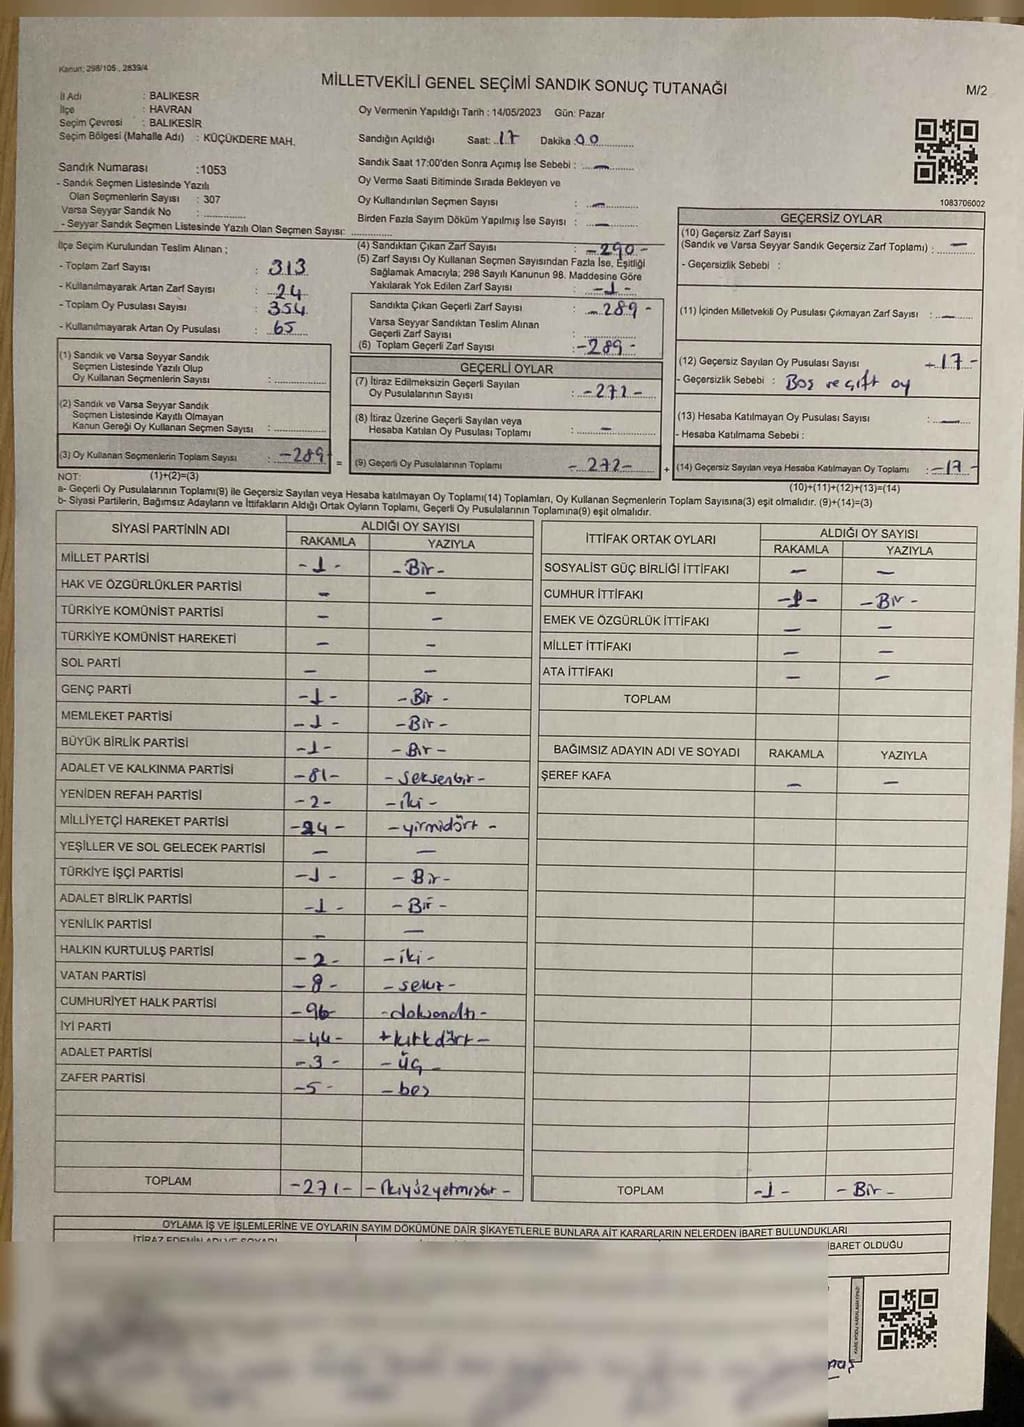 Kanun: 298/105., 2839/4
MİLLETVEKİLİ GENEL SEÇİMİ SANDIK SONUÇ TUTANAĞI
M/2
İl Adı : BALIKESR
İlçe : HAVRAN
Seçim Çevresi : BALIKESİR
Seçim Bölgesi (Mahalle Adı) : KÜÇÜKDERE MAH.
Oy Vermenin Yapıldığı Tarih : 14/05/2023 Gün: Pazar
Sandığın Açıldığı Saat: 17 Dakika: 00
Sandık Saat 17:00'den Sonra Açımış İse Sebebi : —
Oy Verme Saati Bitiminde Sırada Bekleyen ve
Oy Kullandırılan Seçmen Sayısı : —
Birden Fazla Sayım Döküm Yapılmış İse Sayısı : —
Sandık Numarası :1053
- Sandık Seçmen Listesinde Yazılı
Olan Seçmenlerin Sayısı : 307
Varsa Seyyar Sandık No :
- Seyyar Sandık Seçmen Listesinde Yazılı Olan Seçmen Sayısı:
1083706002
İlçe Seçim Kurulundan Teslim Alınan ;
- Toplam Zarf Sayısı : 313
- Kullanılmayarak Artan Zarf Sayısı : 24
- Toplam Oy Pusulası Sayısı : 354
- Kullanılmayarak Artan Oy Pusulası : 65
(1) Sandık ve Varsa Seyyar Sandık
Seçmen Listesinde Yazılı Olup
Oy Kullanan Seçmenlerin Sayısı :
(2) Sandık ve Varsa Seyyar Sandık
Seçmen Listesinde Kayıtlı Olmayan
Kanun Gereği Oy Kullanan Seçmen Sayısı :
(3) Oy Kullanan Seçmenlerin Toplam Sayısı : -289 =
(4) Sandıktan Çıkan Zarf Sayısı : -290-
(5) Zarf Sayısı Oy Kullanan Seçmen Sayısından Fazla İse, Eşitliği
Sağlamak Amacıyla; 298 Sayılı Kanunun 98. Maddesine Göre
Yakılarak Yok Edilen Zarf Sayısı : -1-
Sandıkta Çıkan Geçerli Zarf Sayısı : -289-
Varsa Seyyar Sandıktan Teslim Alınan
Geçerli Zarf Sayısı :
(6) Toplam Geçerli Zarf Sayısı : -289-
GEÇERLİ OYLAR
(7) İtiraz Edilmeksizin Geçerli Sayılan
Oy Pusulalarının Sayısı : -272-
(8) İtiraz Üzerine Geçerli Sayılan veya
Hesaba Katılan Oy Pusulası Toplamı : —
(9) Geçerli Oy Pusulalarının Toplamı -272- +
GEÇERSİZ OYLAR
(10) Geçersiz Zarf Sayısı
(Sandık ve Varsa Seyyar Sandık Geçersiz Zarf Toplamı) : —
- Geçersizlik Sebebi :
(11) İçinden Milletvekili Oy Pusulası Çıkmayan Zarf Sayısı : —
(12) Geçersiz Sayılan Oy Pusulası Sayısı -17-
- Geçersizlik Sebebi : Boş ve çift oy
(13) Hesaba Katılmayan Oy Pusulası Sayısı : —
- Hesaba Katılmama Sebebi :
(14) Geçersiz Sayılan veya Hesaba Katılmayan Oy Toplamı : -17-
NOT: (1)+(2)=(3)
(10)+(11)+(12)+(13)=(14)
a- Geçerli Oy Pusulalarının Toplamı(9) ile Geçersiz Sayılan veya Hesaba katılmayan Oy Toplamı(14) Toplamları, Oy Kullanan Seçmenlerin Toplam Sayısına(3) eşit olmalıdır. (9)+(14)=(3)
b- Siyasi Partilerin, Bağımsız Adayların ve İttifakların Aldığı Ortak Oyların Toplamı, Geçerli Oy Pusulalarının Toplamına(9) eşit olmalıdır.
SİYASİ PARTİNİN ADI ALDIĞI OY SAYISI
RAKAMLA YAZIYLA
MİLLET PARTİSİ -1- -Bir-
HAK VE ÖZGÜRLÜKLER PARTİSİ — —
TÜRKİYE KOMÜNİST PARTİSİ — —
TÜRKİYE KOMÜNİST HAREKETİ — —
SOL PARTİ — —
GENÇ PARTİ -1- -Bir-
MEMLEKET PARTİSİ -1- -Bir-
BÜYÜK BİRLİK PARTİSİ -1- -Bir-
ADALET VE KALKINMA PARTİSİ -81- -seksenbir-
YENİDEN REFAH PARTİSİ -2- -iki-
MİLLİYETÇİ HAREKET PARTİSİ -24- -yirmidört-
YEŞİLLER VE SOL GELECEK PARTİSİ — —
TÜRKİYE İŞÇİ PARTİSİ -1- -Bir-
ADALET BİRLİK PARTİSİ -1- -Bir-
YENİLİK PARTİSİ — —
HALKIN KURTULUŞ PARTİSİ -2- -iki-
VATAN PARTİSİ -8- -sekiz-
CUMHURİYET HALK PARTİSİ -96- -doksanaltı-
İYİ PARTİ -44- -kırkdört-
ADALET PARTİSİ -3- -üç-
ZAFER PARTİSİ -5- -beş
TOPLAM -271- -ikiyüzyetmişbir-
İTTİFAK ORTAK OYLARI ALDIĞI OY SAYISI
RAKAMLA YAZIYLA
SOSYALİST GÜÇ BİRLİĞİ İTTİFAKI — —
CUMHUR İTTİFAKI -1- -Bir-
EMEK VE ÖZGÜRLÜK İTTİFAKI — —
MİLLET İTTİFAKI — —
ATA İTTİFAKI — —
TOPLAM
BAĞIMSIZ ADAYIN ADI VE SOYADI RAKAMLA YAZIYLA
ŞEREF KAFA — —
TOPLAM -1- -Bir-
OYLAMA İŞ VE İŞLEMLERİNE VE OYLARIN SAYIM DÖKÜMÜNE DAİR ŞİKAYETLERLE BUNLARA AİT KARARLARIN NELERDEN İBARET BULUNDUKLARI
İTİRAZ EDENİN ADI VE SOYADI
İBARET OLDUĞU